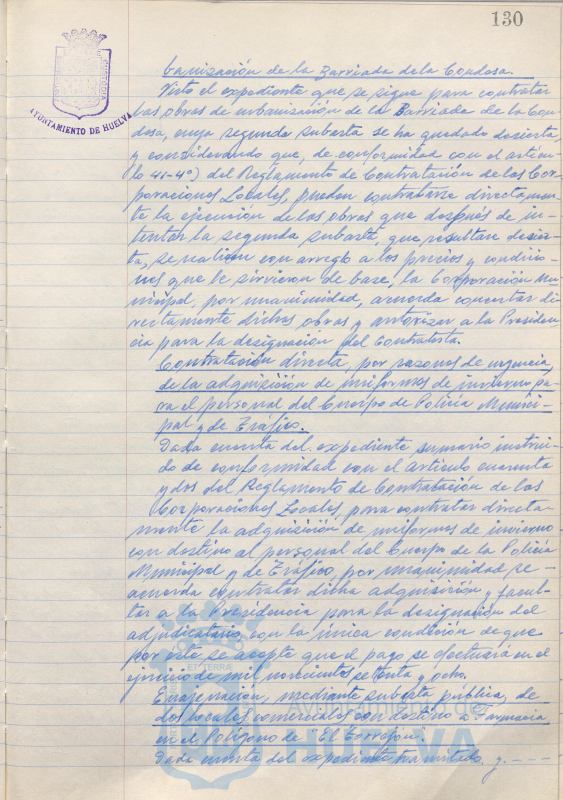 130
AYUNTAMIENTO DE HUELVA
CUSTODIA
banización de la Barriada de la Condosa.
Visto el expediente que se sigue para contratar
las obras de urbanización de la Barriada de la Con-
dosa, cuya segunda subasta se ha quedado desierta,
y considerando que, de conformidad con el artícu-
lo 41-4º) del Reglamento de Contratación de las Cor-
poraciones Locales, pueden contratarse directamen-
te la ejecución de las obras que después de in-
tentar la segunda subasta, que resultare desier-
ta, se realicen con arreglo a los precios y condicio-
nes que le sirvieron de base, la Corporación Mu-
nicipal, por unanimidad, acuerda concertar di-
rectamente dichas obras y autorizar a la Presiden-
cia para la designación del Contratista.
Contratación directa, por razones de urgencia,
de la adquisición de uniformes de invierno pa-
ra el personal del Cuerpo de Policía Munici-
pal y de Tráfico.
Dada cuenta del expediente sumario instrui-
do de conformidad con el Artículo cuarenta
y dos del Reglamento de Contratación de las
Corporaciones Locales, para contratar directa-
mente la adquisición de uniformes de invierno
con destino al personal del Cuerpo de la Policía
Municipal y de Tráfico, por unanimidad se
acuerda contratar dicha adquisición y facul-
tar a la Presidencia para la designación del
adjudicatario, con la única condición de que
por éste se acepte que el pago se efectuará en el
ejercicio de mil novecientos setenta y ocho.
Enajenación, mediante subasta pública, de
dos locales comerciales con destino a Farmacia
en el Polígono de "El Torrejón".
Dada cuenta del expediente tramitado y ----
ET TERRAE
Ayuntamiento de
HUELVA